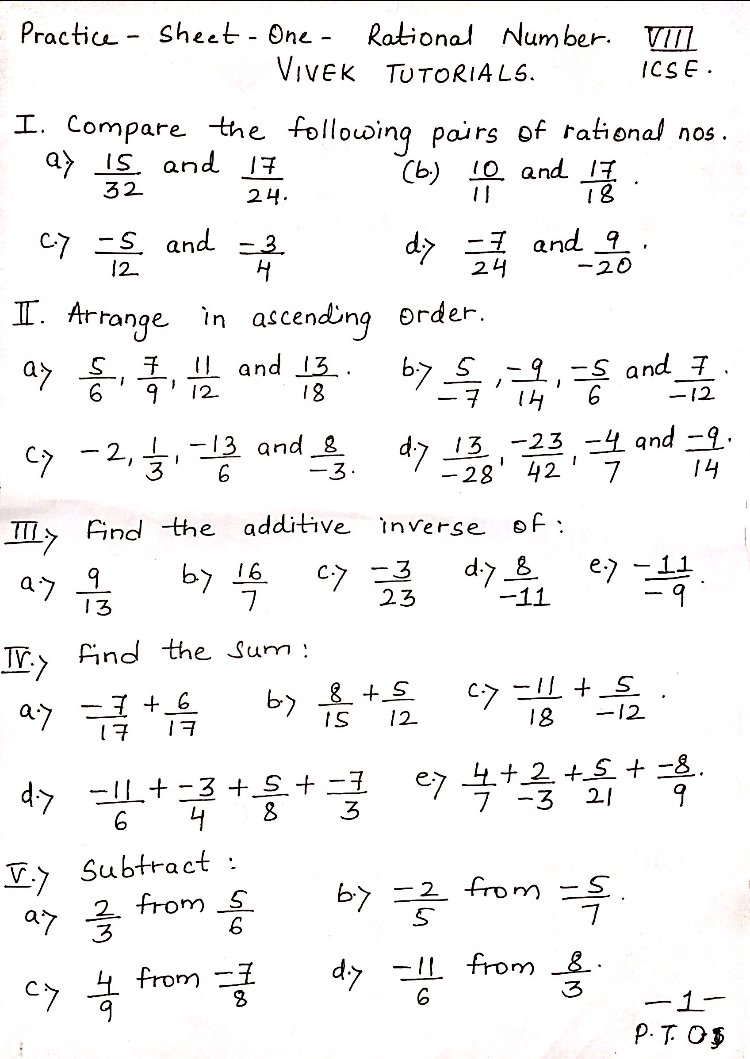 Practice - Sheet - One - Rational Number. VIII
VIVEK TUTORIALS. ICSE.
I. Compare the following pairs of rational nos.
a) 15/32 and 17/24. (b.) 10/11 and 17/18.
c.) -5/12 and -3/4 d.) -7/24 and 9/-20.
II. Arrange in ascending order.
a) 5/6, 7/9, 11/12 and 13/18. b.) 5/-7, -9/14, -5/6 and 7/-12.
c) -2, 1/3, -13/6 and 8/-3. d.) 13/-28, -23/42, -4/7 and -9/14.
III.) Find the additive inverse of :
a.) 9/13 b.) 16/7 c.) -3/23 d.) 8/-11 e.) -11/-9.
IV.) Find the sum :
a.) -7/17 + 6/17 b.) 8/15 + 5/12 c.) -11/18 + 5/-12.
d.) -11/6 + -3/4 + 5/8 + -7/3 e.) 4/7 + 2/-3 + 5/21 + -8/9.
V.) Subtract :
a.) 2/3 from 5/6 b.) -2/5 from -5/7.
c.) 4/9 from -7/8 d.) -11/6 from 8/3.
-1-
P.T.O